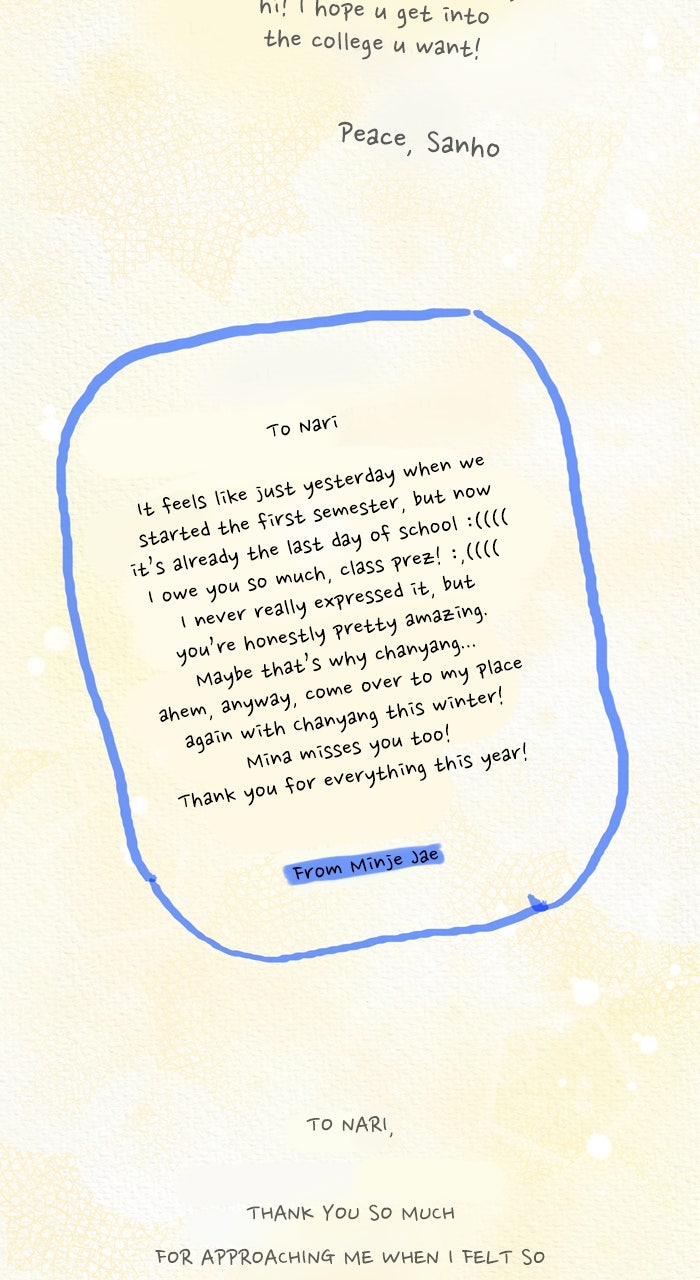 hi! I hope u get into
the college u want!
Peace, Sanho
To Nari
It feels like just yesterday when we
started the first semester, but now
it's already the last day of school :((((
I owe you so much, class prez! :,((((
I never really expressed it, but
you're honestly pretty amazing.
Maybe that's why chanyang...
ahem, anyway, come over to my place
again with chanyang this winter!
Mina misses you too!
Thank you for everything this year!
From Minje Jae
TO NARI,
THANK YOU SO MUCH
FOR APPROACHING ME WHEN I FELT SO